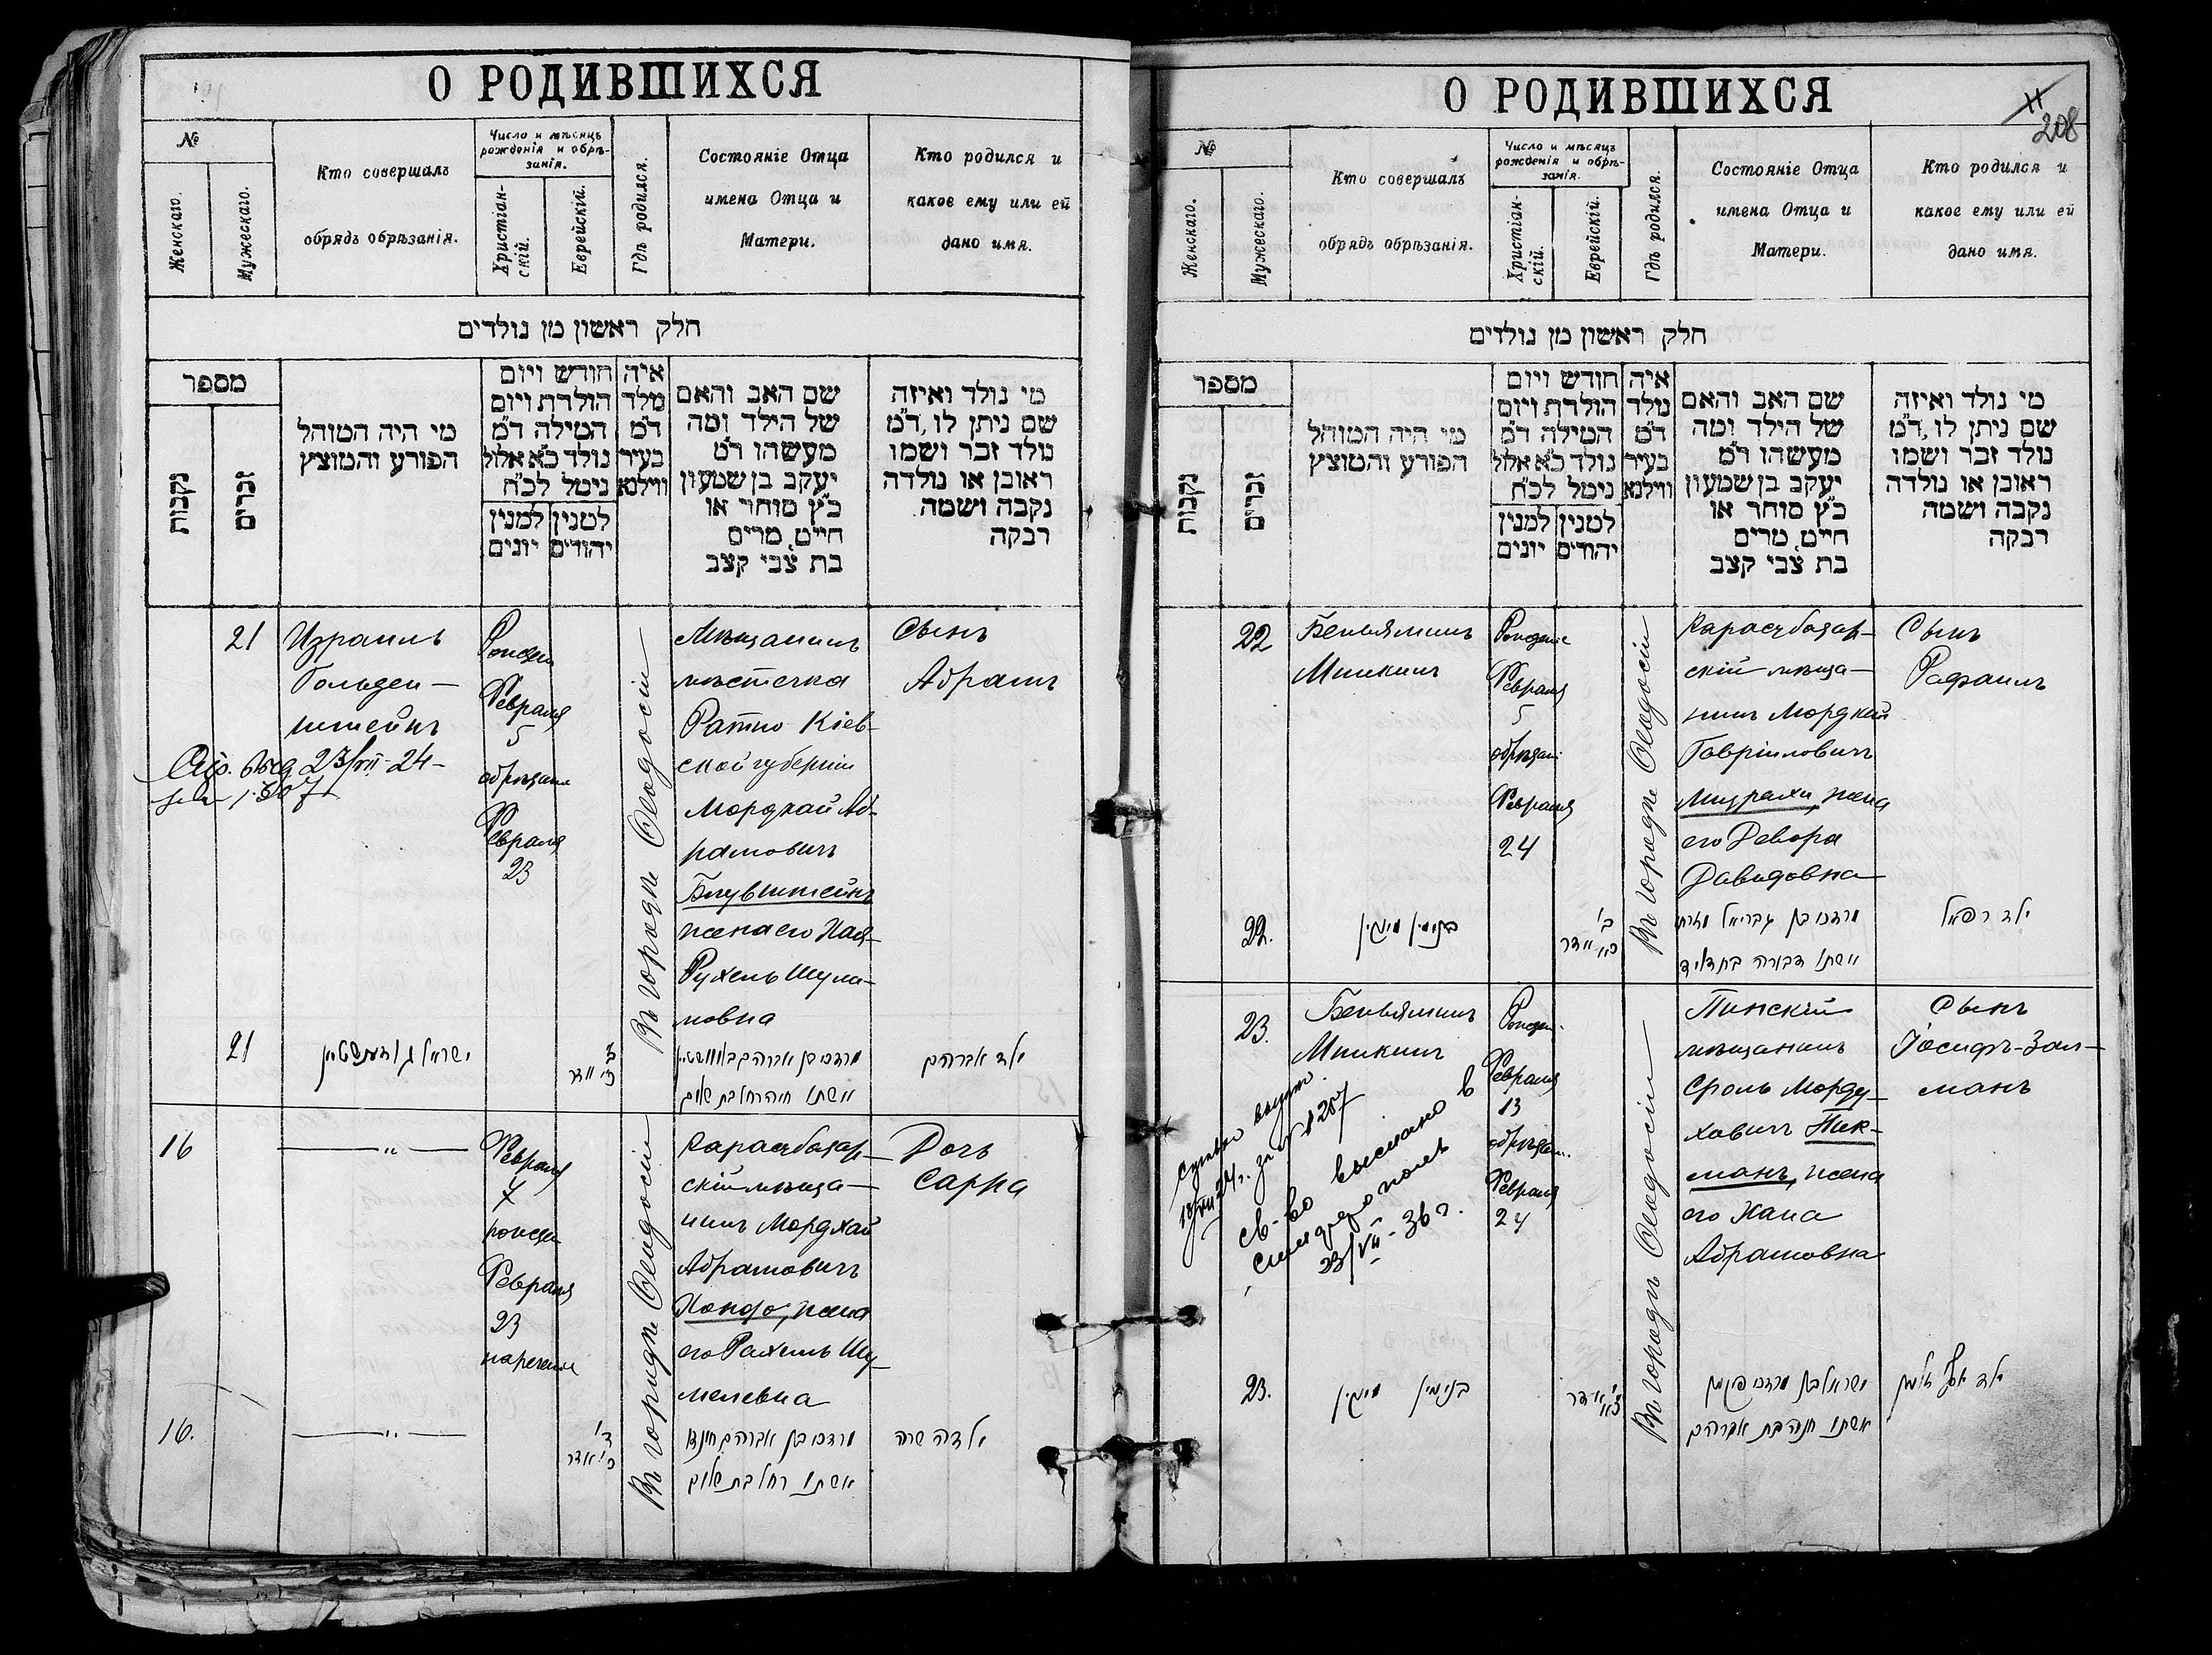 О РОДИВШИХСЯ
№
Женскаго.
Мужескаго.
Кто совершалъ
обрядъ обрѣзанія.
Число и мѣсяцъ
рожденія и обрѣ-
занія.
Христіан-
скій.
Еврейскій.
Гдѣ родился.
Состояніе Отца
имена Отца и
Матери.
Кто родился и
какое ему или ей
дано имя.
חלק ראשון מן נולדים
מספר
נקבות
זכרים
מי היה המוהל
הפורע והמוצץ
חודש ויום
הולדת ויום
המילה ד״מ
נולד כ״א אלול
ניטל לכ״ח
למנין
יונים
למנין
יהודים
איה
מלד
ד״מ
בעיר
ווילנא
שם האב והאם
של הילד ומה
מעשהו ד״מ
יעקב בן שמעון
כ״ץ סוחר או
חייט, מרים
בת צבי קצב
מי נולד ואיזה
שם ניתן לו, ד״מ
נולד זכר ושמו
ראובן או נולדה
נקבה ושמה
רבקה
21
Израиль
Гольден-
штейнъ
Февраля
5
обрѣзанія
Февраля
23
Въ городѣ Ѳеодосіи
Мѣщанинъ
мѣстечка
Ратно Кіев-
ской губерніи
Мордхай Аб-
рамовичъ
Блувштейнъ
жена его Хая-
Рухель Шула-
мовна
Сынъ
Абрамъ
21
ילד אברהם
16
Февраля
рожден
Февраля
23
нареченіе
Въ городѣ Ѳеодосіи
Карасубазар-
скій мѣща-
нинъ Мордхай
Абрамовичъ
жена
его Рахиль Шу-
мелевна
Дочь
Сарра
16.
מרדכי בן אברהם
אשתו רחל בת שלום
ילדה שרה
О РОДИВШИХСЯ
11
208
№
Женскаго.
Мужескаго.
Кто совершалъ
обрядъ обрѣзанія.
Число и мѣсяцъ
рожденія и обрѣ-
занія.
Христіан-
скій.
Еврейскій.
Гдѣ родился.
Состояніе Отца
имена Отца и
Матери.
Кто родился и
какое ему или ей
дано имя.
חלק ראשון מן נולדים
מספר
נקבות
זכרים
מי היה המוהל
הפורע והמוצץ
חודש ויום
הולדת ויום
המילה ד״מ
נולד כ״א אלול
ניטל לכ״ח
למנין
יונים
למנין
יהודים
איה
מלד
ד״מ
בעיר
ווילנא
שם האב והאם
של הילד ומה
מעשהו ד״מ
יעקב בן שמעון
כ״ץ סוחר או
חייט, מרים
בת צבי קצב
מי נולד ואיזה
שם ניתן לו, ד״מ
נולד זכר ושמו
ראובן או נולדה
נקבה ושמה
רבקה
22
Беньяминъ
Мишкинъ
Февраля
5
обрѣзан
Февраля
24
Въ городѣ Ѳеодосіи
Карасубазар-
скій мѣща-
нинъ Мордхай
Гавріиловичъ
Мизрахи, жена
его Девора
Давидовна
Сынъ
Рафаилъ
22.
בנימין מישקין
ילד רפאל
23.
Беньяминъ
Мишкинъ
Февраля
13
обрѣзан.
Февраля
24
Въ городѣ Ѳеодосіи
Пинскій
мѣщанинъ
Сроль Морду-
ховичъ Пик-
манъ, жена
его Хана
Абрамовна
Сынъ
Іосифъ-Зал-
манъ
св-во выслано в
Симферополь
23/VII-36 г.
23.
בנימין מישקין
ישראל בן מרדכי פיקמן
אשתו חנה בת אברהם